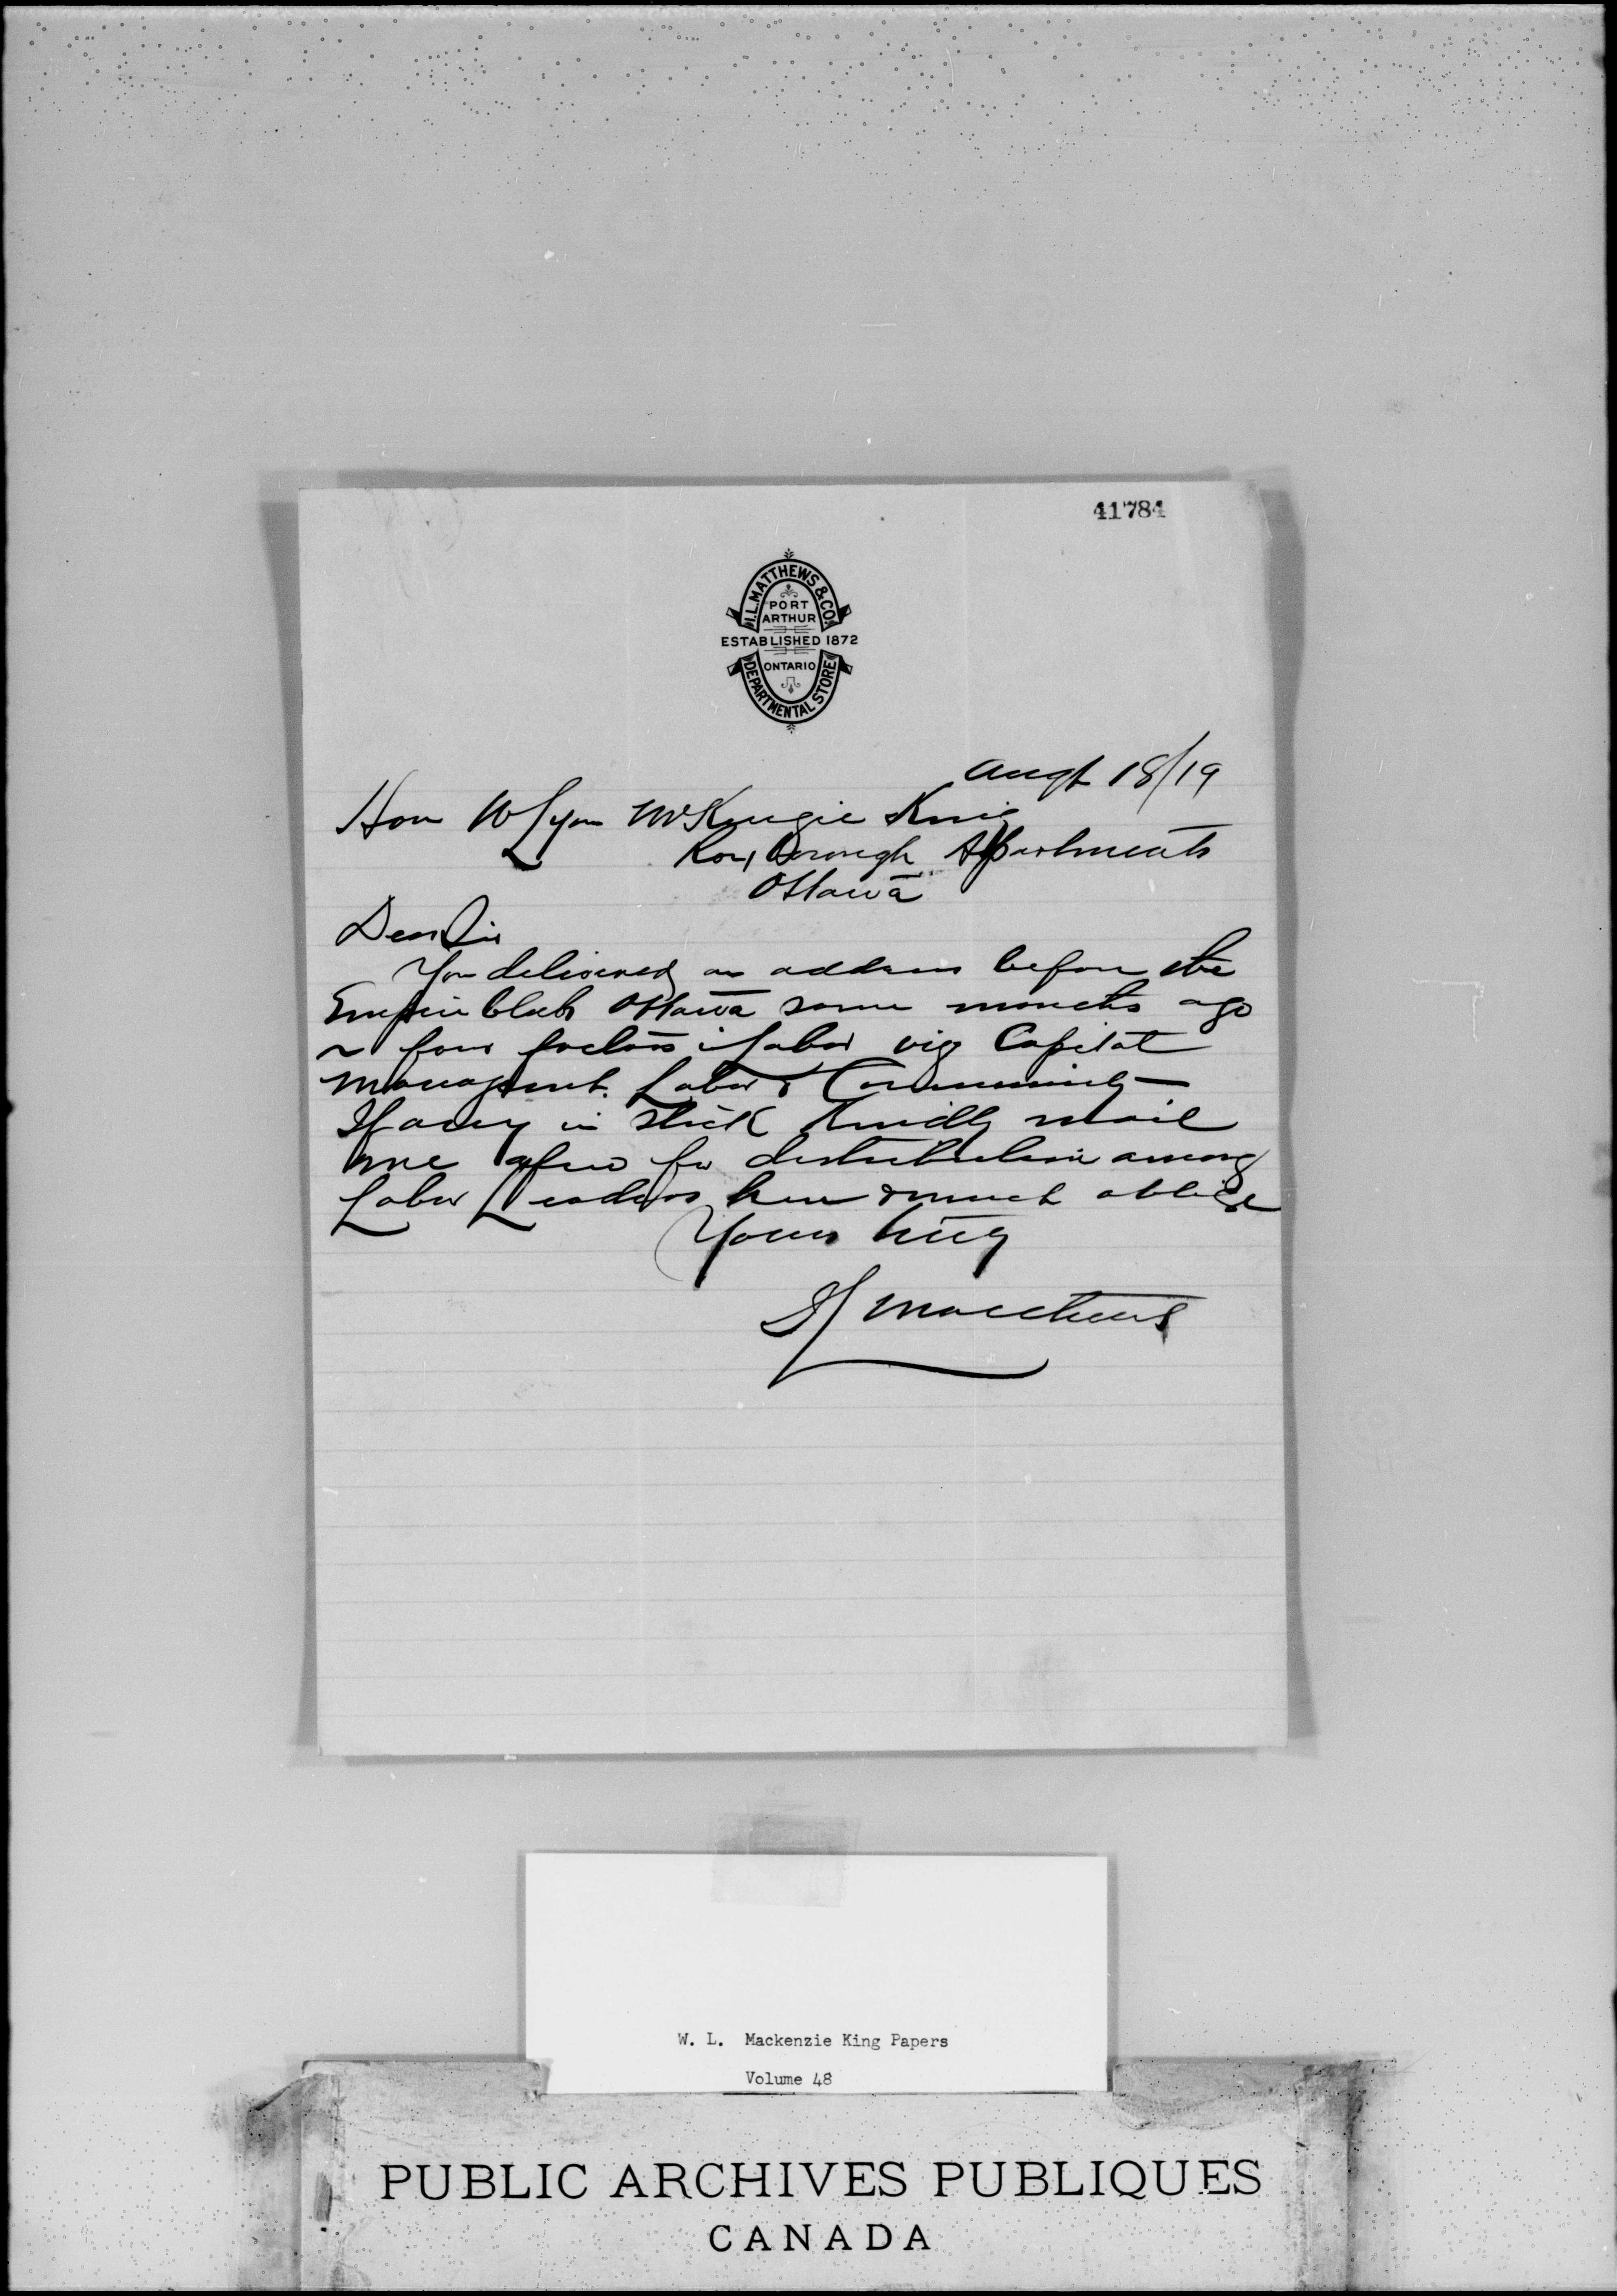 41784
I.L. MATTHEWS & CO.
PORT
ARTHUR
ESTABLISHED 1872
ONTARIO
DEPARTMENTAL STORE
Augt 18/19
Hon W Lyon McKenzie King
Roxborough Appartments
Ottawa
Dear Sir
You delivered an address before the
Empire Club Ottawa some months ago
four factors in Labor viz Capital
Management. Labor & Community
If any in stock kindly mail
me a few for distribution among
Labor Leaders here & much oblige
Yours truly
I L Matthews
W. L. Mackenzie King Papers
Volume 48
PUBLIC ARCHIVES PUBLIQUES
CANADA